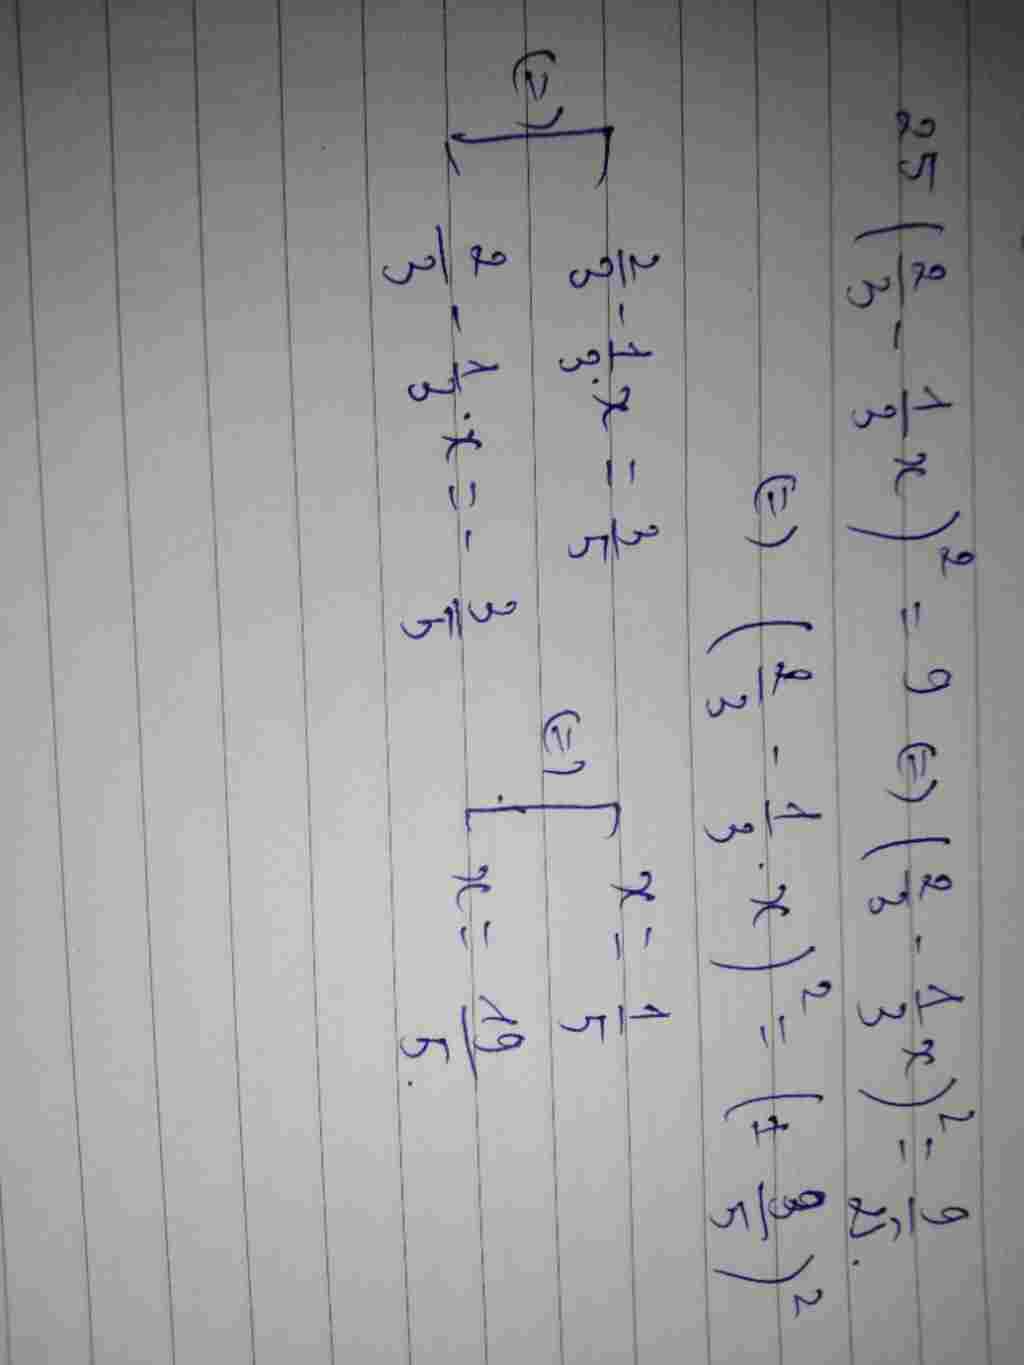 25(2/3 - 1/3 x)² = 9 (=) (2/3 - 1/3 x)² = 9/25.
(=) (2/3 - 1/3 . x)² = (± 3/5)²
(=) [ 2/3 - 1/3 . x = 3/5 (=) [ x = 1/5
2/3 - 1/3 . x = - 3/5 x = 19/5.